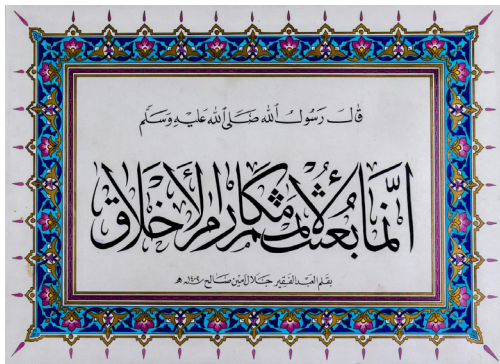 قَالَ رَسُولُ ٱللّٰه صَلَّى ٱللّٰه عَلَيْهِ وَسَلَّم
انَّمَا بُعِثْتُ لِأُتَمِّمَ مَكَارِمَ الأَخْلَاق
بقلم العبد الفقير جلال امين صالح ١٤٠٩ هـ